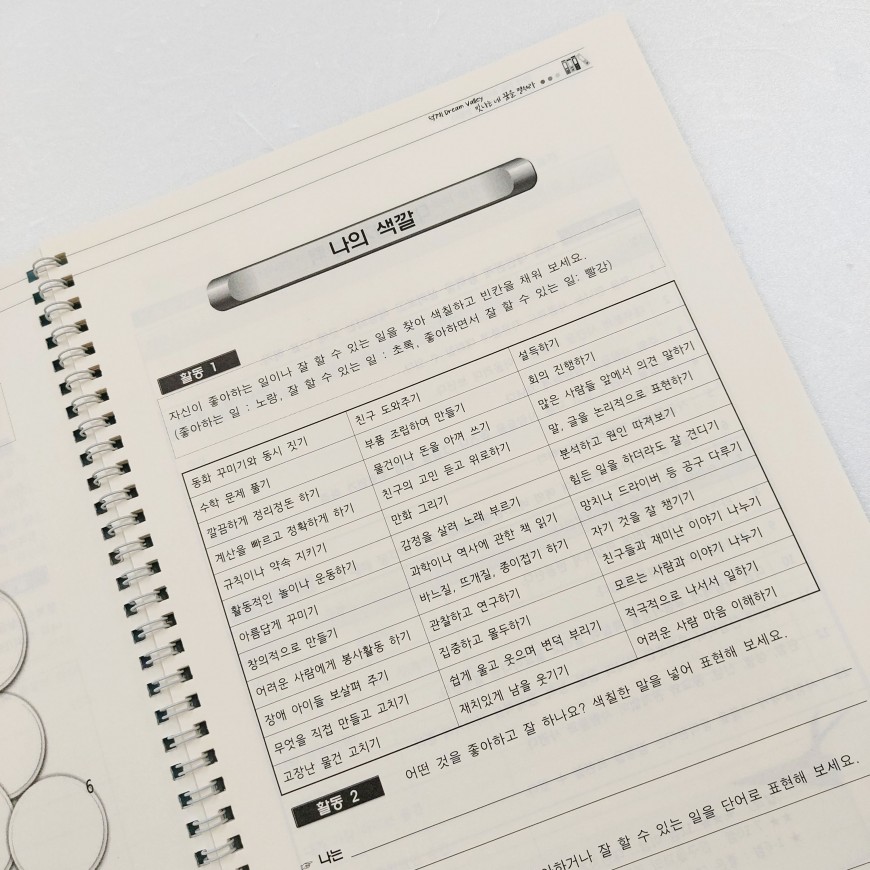 덕계 Dream Valley
빛나는 내 꿈을 펼쳐라
나의 색깔
활동 1
자신이 좋아하는 일이나 잘 할 수 있는 일을 찾아 색칠하고 빈칸을 채워 보세요.
(좋아하는 일 : 노랑, 잘 할 수 있는 일 : 초록, 좋아하면서 잘 할 수 있는 일: 빨강)
동화 꾸미기와 동시 짓기 친구 도와주기 설득하기
수학 문제 풀기 부품 조립하여 만들기 회의 진행하기
깔끔하게 정리정돈 하기 물건이나 돈을 아껴 쓰기 많은 사람들 앞에서 의견 말하기
계산을 빠르고 정확하게 하기 친구의 고민 듣고 위로하기 말, 글을 논리적으로 표현하기
규칙이나 약속 지키기 만화 그리기 분석하고 원인 따져보기
활동적인 놀이나 운동하기 감정을 살려 노래 부르기 힘든 일을 하더라도 잘 견디기
아름답게 꾸미기 과학이나 역사에 관한 책 읽기 망치나 드라이버 등 공구 다루기
창의적으로 만들기 바느질, 뜨개질, 종이접기 하기 자기 것을 잘 챙기기
어려운 사람에게 봉사활동 하기 관찰하고 연구하기 친구들과 재미난 이야기 나누기
장애 아이들 보살펴 주기 집중하고 몰두하기 모르는 사람과 이야기 나누기
무엇을 직접 만들고 고치기 쉽게 울고 웃으며 변덕 부리기 적극적으로 나서서 일하기
고장난 물건 고치기 재치있게 남을 웃기기 어려운 사람 마음 이해하기
활동 2
어떤 것을 좋아하고 잘 하나요? 색칠한 말을 넣어 표현해 보세요.
☞ 나는
잘 할 수 있는 일을 단어로 표현해 보세요.
6